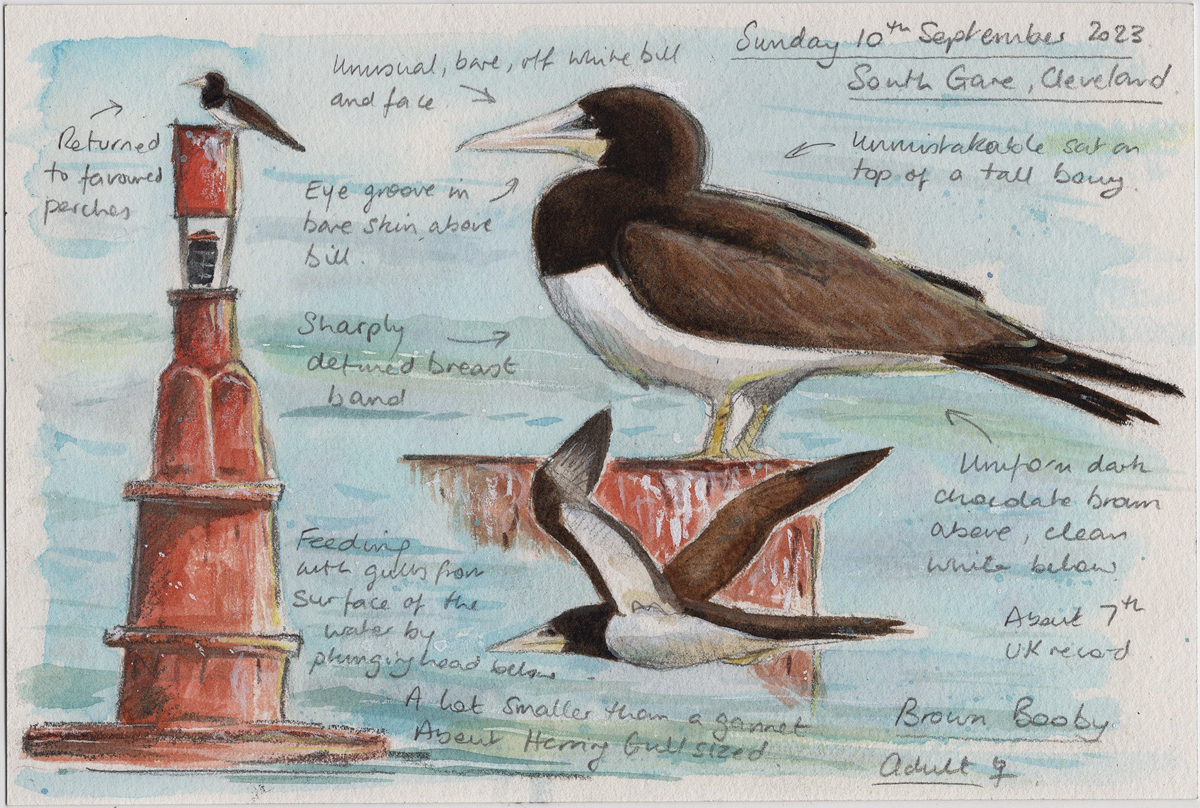 Sunday 10th September 2023
South Gare, Cleveland
Unusual, bare, off white bill
and face
Returned
to favoured
perches
Eye groove in
bare skin above
bill.
Unmistakable sat on
top of a tall buoy.
Sharply
defined breast
band
Uniform dark
chocolate brown
above, clean
white below.
Feeding
with gulls from
surface of the
water by
plunging head below.
About 7th
UK record
A lot smaller than a gannet
About Herring Gull sized.
Brown Booby
Adult ♀